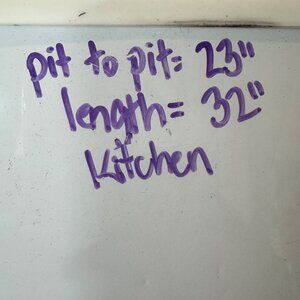 pit to pit= 23"
length= 32"
Kitchen